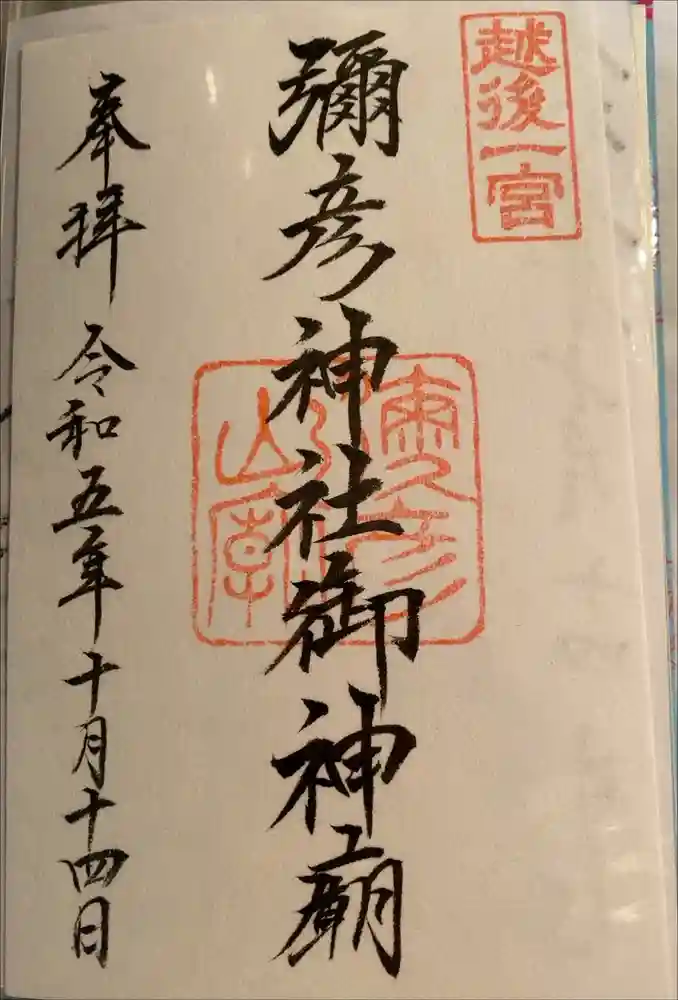 越後一宮
彌彦神社御神廟
奉拝 令和五年十月十四日